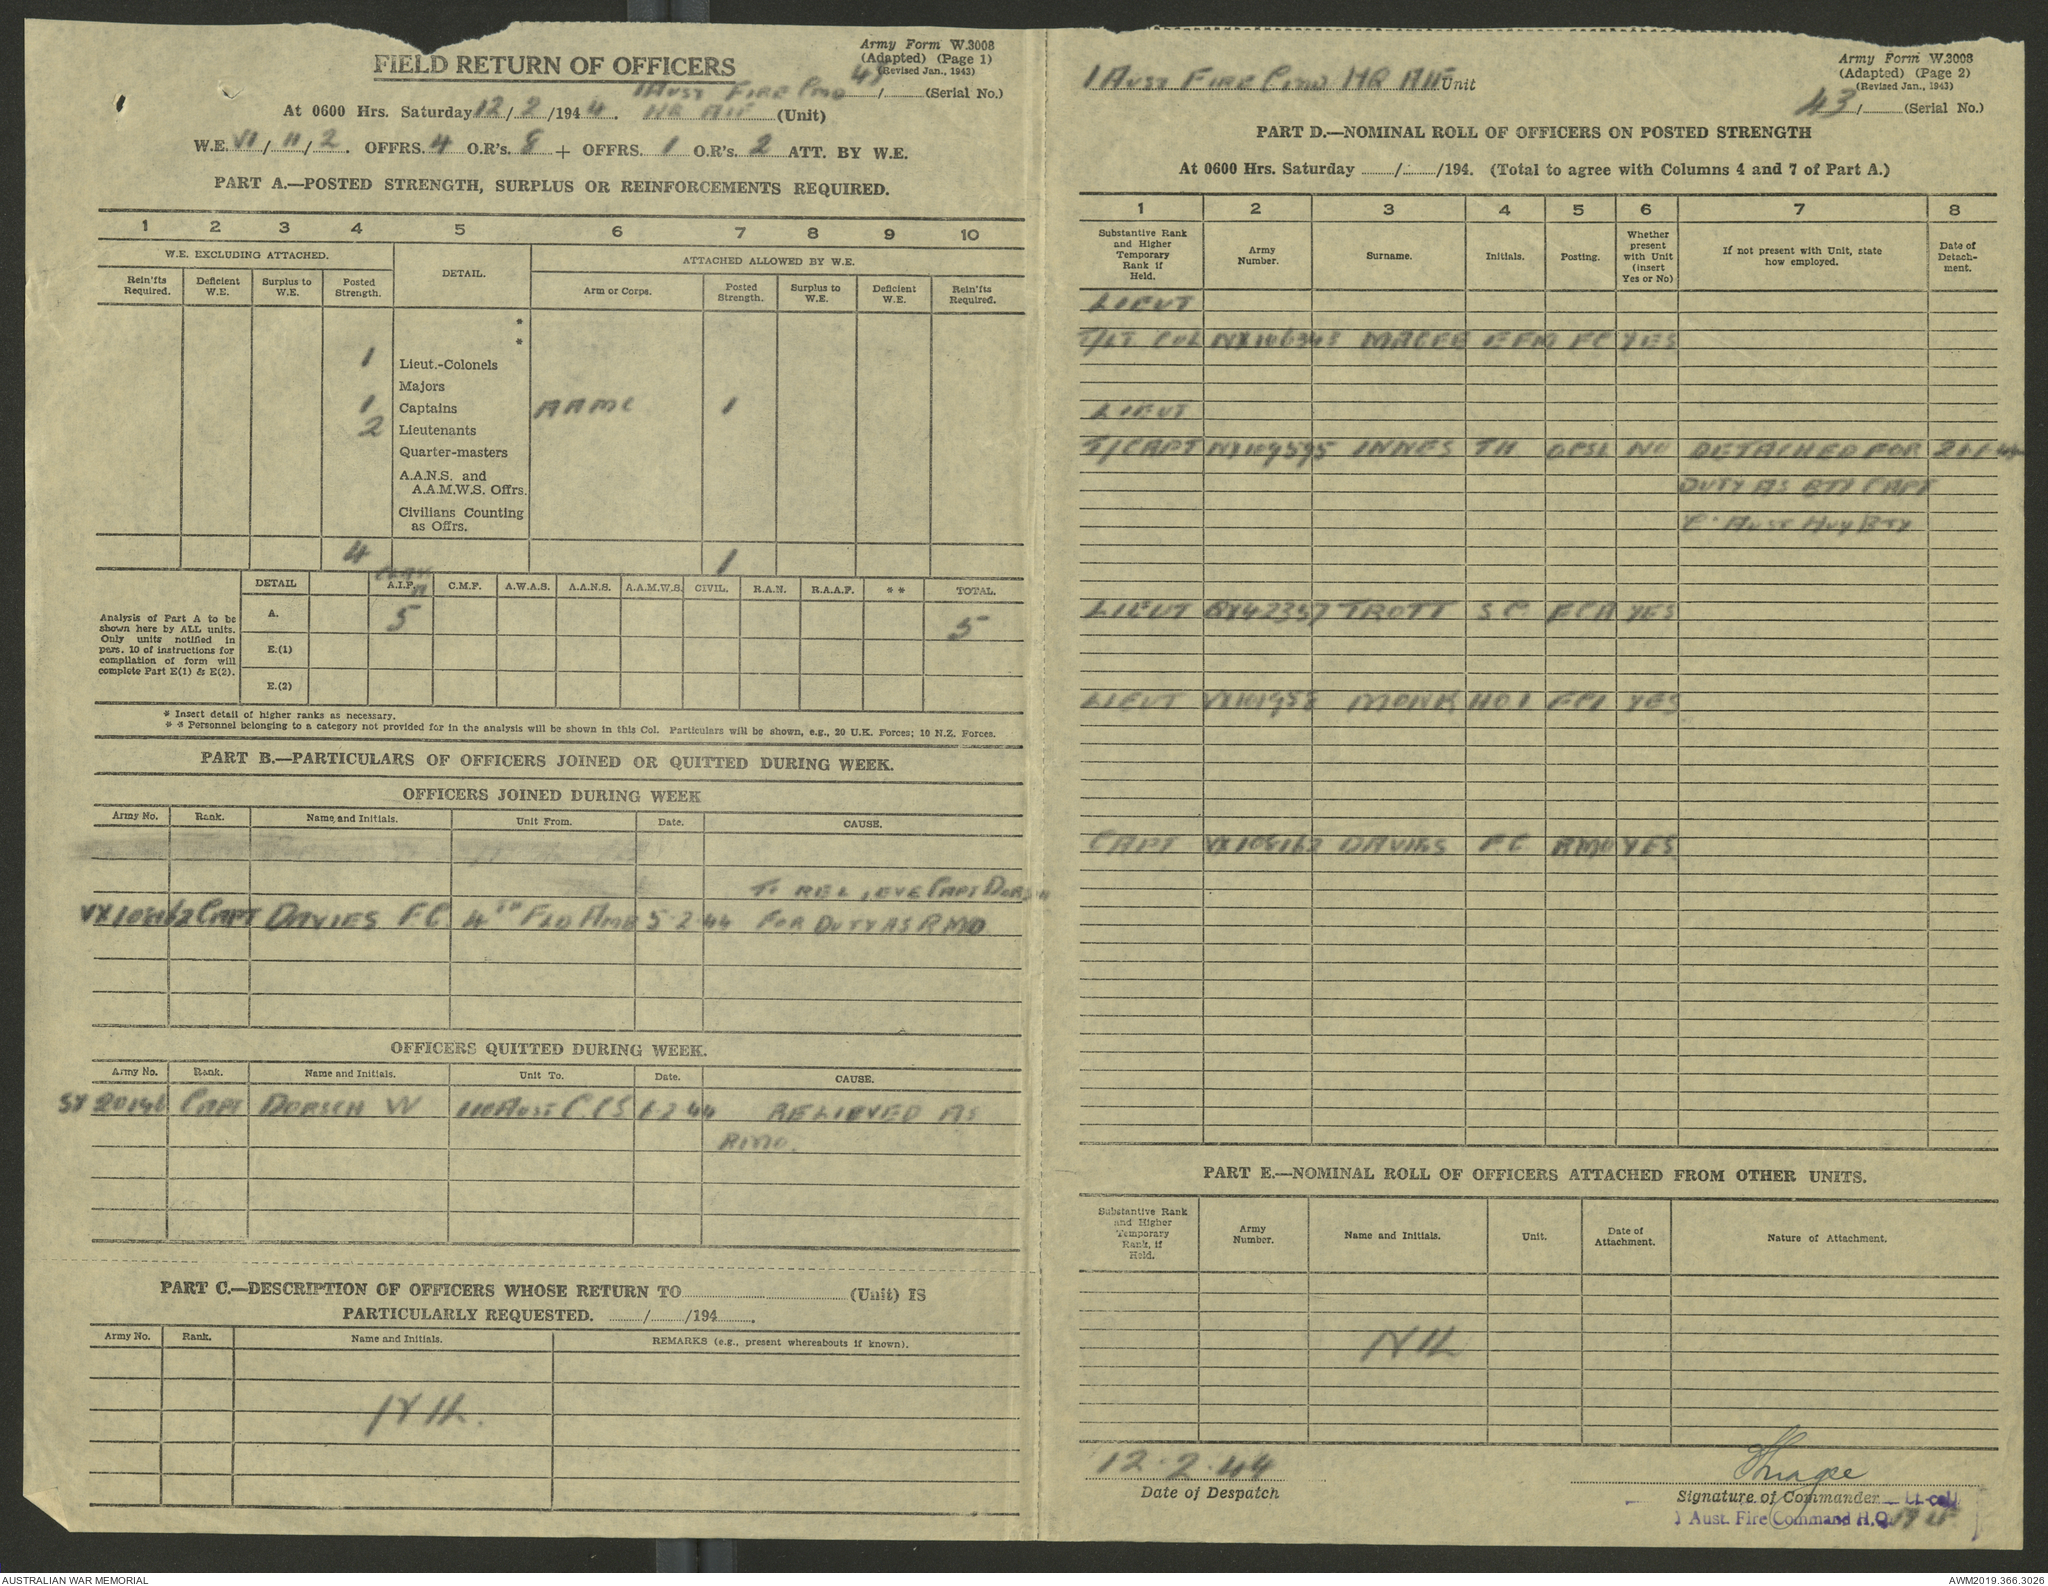 FIELD RETURN OF OFFICERS
Army Form W.3008
(Adapted) (Page 1)
(Revised Jan., 1943)
1 AUST FIRE CMD 43/ (Serial No.)
At 0600 Hrs. Saturday 12/2/1944. HQ AIF (Unit)
W.E. VI/11/2. OFFRS. 4 O.R's. 8 + OFFRS. 1 O.R's. 2 ATT. BY W.E.
PART A.—POSTED STRENGTH, SURPLUS OR REINFORCEMENTS REQUIRED.
1 2 3 4 5 6 7 8 9 10
W.E. EXCLUDING ATTACHED. DETAIL. ATTACHED ALLOWED BY W.E.
Rein'fts Required. Deficient W.E. Surplus to W.E. Posted Strength. Arm or Corps. Posted Strength. Surplus to W.E. Deficient W.E. Rein'fts Required.
*
*
1 Lieut.-Colonels
Majors
1 Captains AAMC 1
2 Lieutenants
Quarter-masters
A.A.N.S. and
A.A.M.W.S. Offrs.
Civilians Counting
as Offrs.
4 1
DETAIL A.I.F. C.M.F. A.W.A.S. A.A.N.S. A.A.M.W.S. CIVIL. R.A.N. R.A.A.F. * * TOTAL.
Analysis of Part A to be
shown here by ALL units.
Only units notified in
para. 10 of instructions for
compilation of form will
complete Part E(1) & E(2).
A. 5 5
E.(1)
E.(2)
* Insert detail of higher ranks as necessary.
* * Personnel belonging to a category not provided for in the analysis will be shown in this Col. Particulars will be shown, e.g., 20 U.K. Forces; 10 N.Z. Forces.
PART B.—PARTICULARS OF OFFICERS JOINED OR QUITTED DURING WEEK.
OFFICERS JOINED DURING WEEK
Army No. Rank. Name and Initials. Unit From. Date. CAUSE.
TO RELIEVE CAPT DORSCH
VX108162 CAPT DAVIES F.C. 4TH FLD AMB 5-2-44 FOR DUTY AS RMO
OFFICERS QUITTED DURING WEEK.
Army No. Rank. Name and Initials. Unit To. Date. CAUSE.
SX20146 CAPT DORSCH W 110 AUST C.C.S 6-2-44 RELIEVED AS
RMO.
PART C.—DESCRIPTION OF OFFICERS WHOSE RETURN TO (Unit) IS
PARTICULARLY REQUESTED. / /194 .
Army No. Rank. Name and Initials. REMARKS (e.g., present whereabouts if known).
NIL.
1 AUST FIRE CMD HQ AIF Unit
Army Form W.3008
(Adapted) (Page 2)
(Revised Jan., 1943)
43/ (Serial No.)
PART D.—NOMINAL ROLL OF OFFICERS ON POSTED STRENGTH
At 0600 Hrs. Saturday / /194. (Total to agree with Columns 4 and 7 of Part A.)
1 2 3 4 5 6 7 8
Substantive Rank and Higher Temporary Rank if Held. Army Number. Surname. Initials. Posting. Whether present with Unit (insert Yes or No) If not present with Unit, state how employed. Date of Detachment.
LIEUT
T/LT COL NX106345 MAGEE EFM FC YES
LIEUT
T/CAPT NX109595 INNES TH OPSL NO DETACHED FOR 21-1-44
DUTY AS BTY CAPT
AUST HVY BTY
LIEUT QX42357 TROTT S C FCA YES
LIEUT VX101958 MONK HOI FCI YES
CAPT VX108162 DAVIES F.C RMO YES
PART E.—NOMINAL ROLL OF OFFICERS ATTACHED FROM OTHER UNITS.
Substantive Rank and Higher Temporary Rank, if Held. Army Number. Name and Initials. Unit. Date of Attachment. Nature of Attachment.
NIL
12.2.44
Date of Despatch
Signature of Commander Lt-col
1 Aust. Fire Command H.Q.
AUSTRALIAN WAR MEMORIAL
AWM2019.366.3026